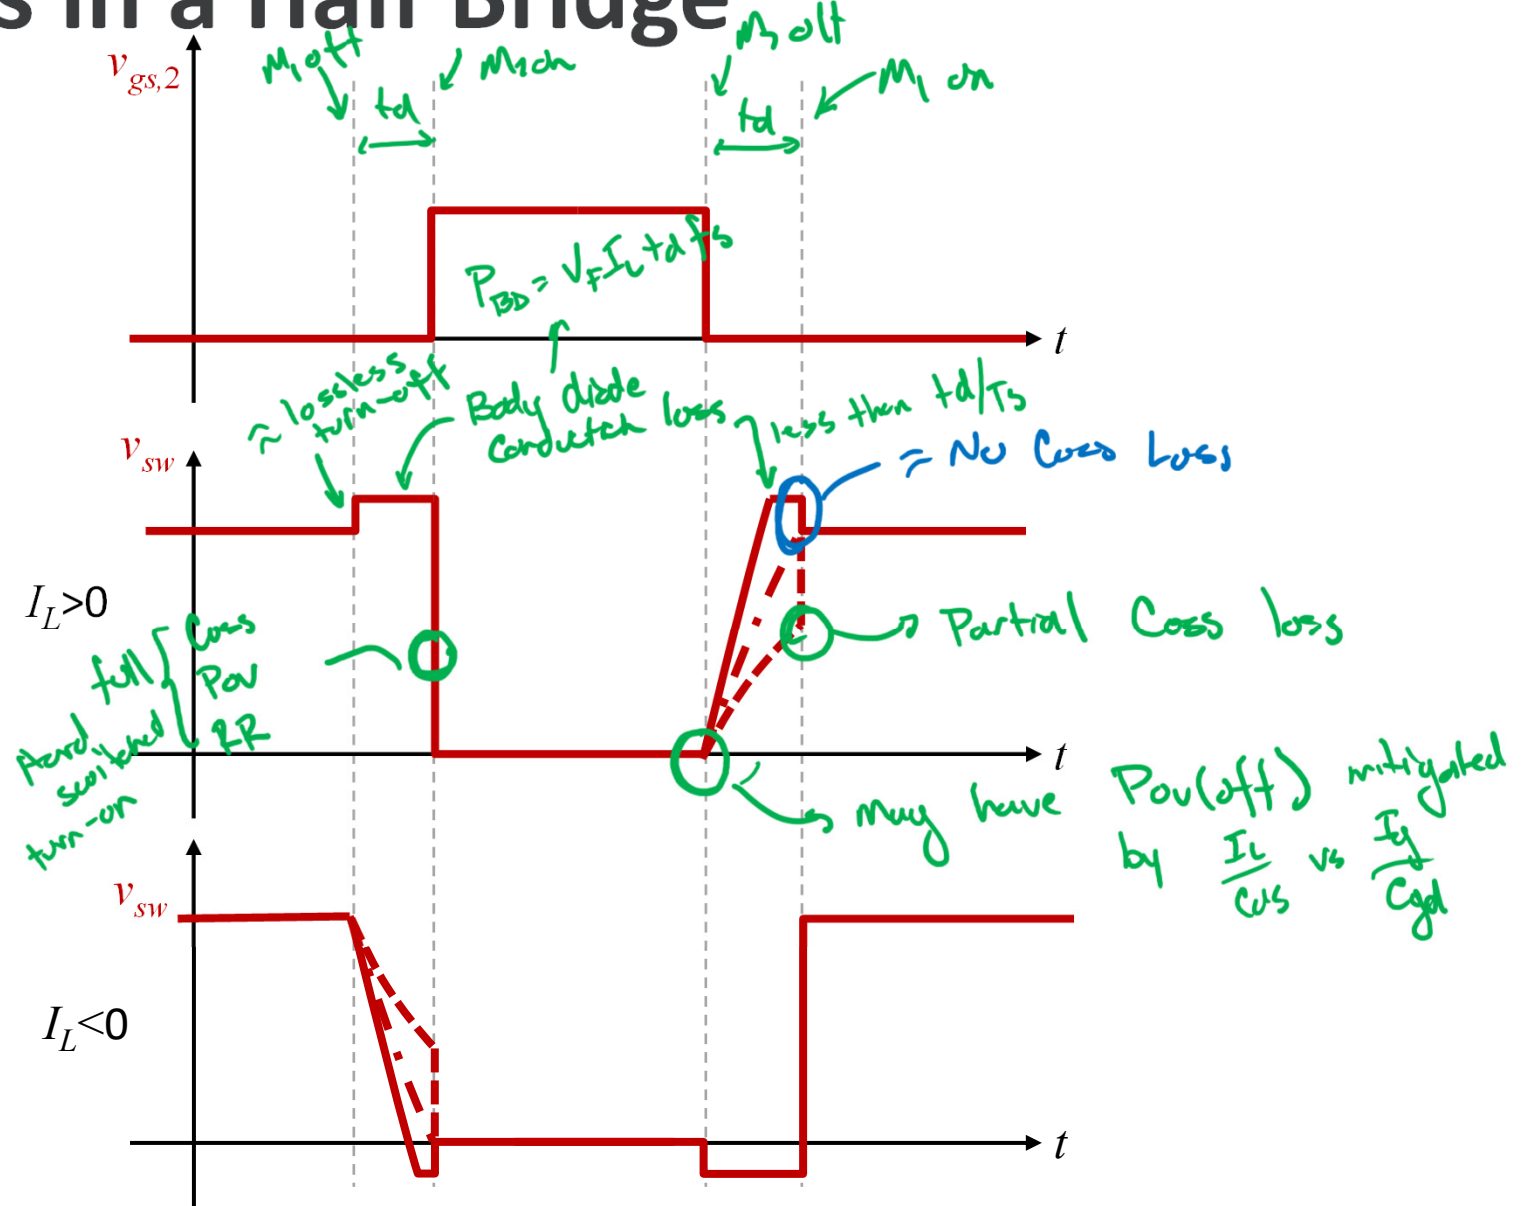 s in a Half Bridge
v_gs,2
M1 off
td
M2 on
M2 off
td
M1 on
P_BD = V_F I_L td fs
t
≈ lossless
turn-off
Body diode
conduction loss
less than td/Ts
≈ No Coss Loss
v_sw
I_L>0
full { Coss
Pov
RR
Hard
switched
turn-on
Partial Coss loss
t
may have Pov(off) mitigated
by I_L/Cds vs Ig/Cgd
v_sw
I_L<0
t